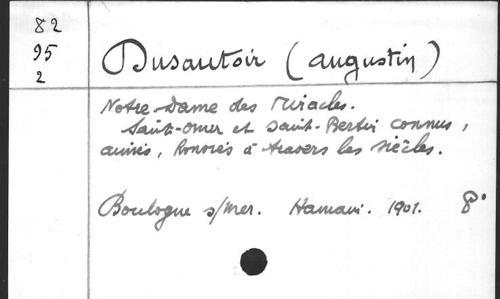 82
95
2
Dusautoir (Augustin)
Notre-Dame des Miracles.
Saint-Omer et Saint-Bertin connus,
aimés, honorés à travers les siècles.
Boulogne s/Mer. Hamain. 1901. 8°